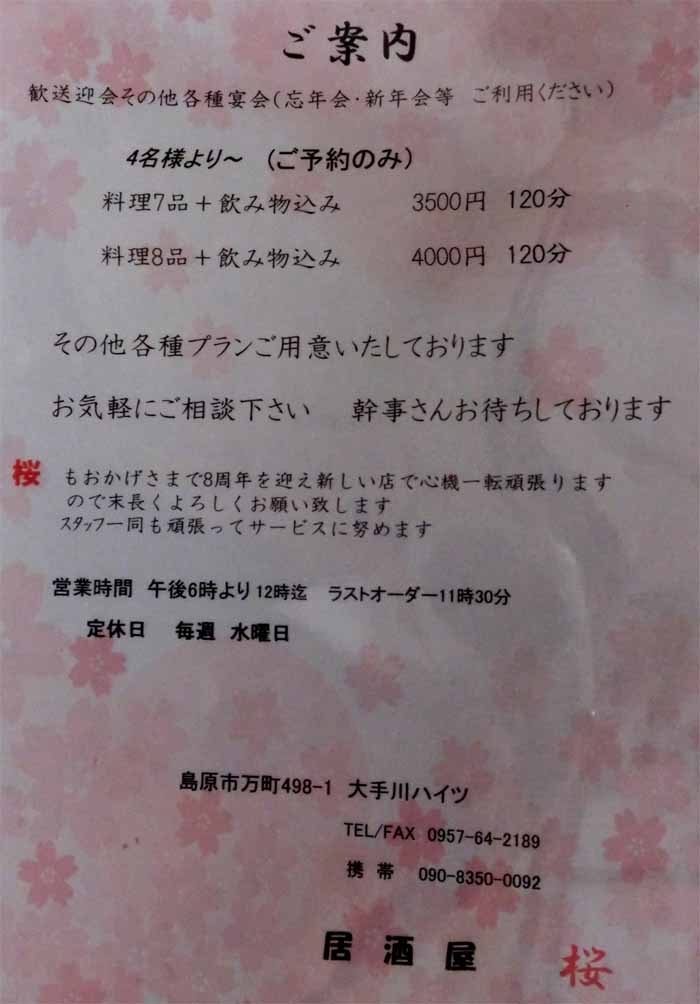 ご案内
歓送迎会その他各種宴会(忘年会・新年会等 ご利用ください)
4名様より～ (ご予約のみ)
料理7品＋飲み物込み 3500円 120分
料理8品＋飲み物込み 4000円 120分
その他各種プランご用意いたしております
お気軽にご相談下さい 幹事さんお待ちしております
桜 もおかげさまで8周年を迎え新しい店で心機一転頑張ります
ので末長くよろしくお願い致します
スタッフ一同も頑張ってサービスに努めます
営業時間 午後6時より12時迄 ラストオーダー11時30分
定休日 毎週 水曜日
島原市万町498-1 大手川ハイツ
TEL/FAX 0957-64-2189
携帯 090-8350-0092
居酒屋 桜